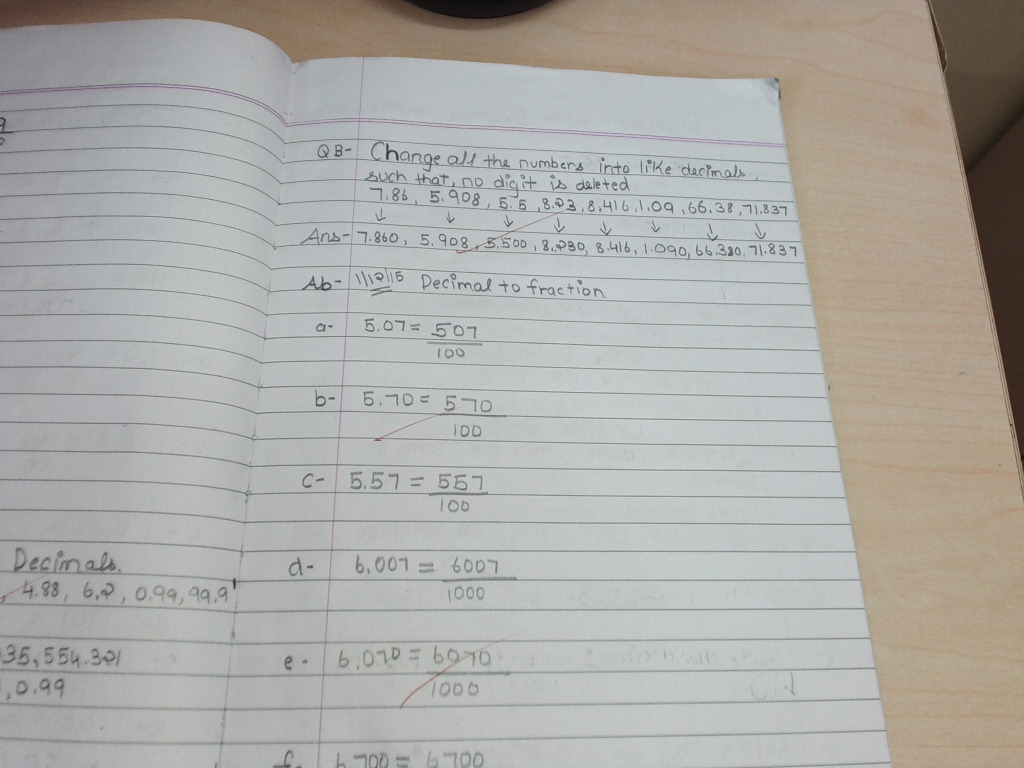 Decimals.
4.88, 6.2, 0.99, 99.9
35, 554.321
, 0.99
QB- Change all the numbers into like decimals,
such that, no digit is deleted
7.86, 5.908, 5.5, 8.23, 8,416, 1.09, 66.38, 71.837
↓ ↓ ↓ ↓ ↓ ↓ ↓ ↓
Ans- 7.860, 5.908, 5.500, 8.230, 8.416, 1.090, 66.380, 71.837
Ab- 1/12/15 Decimal to fraction
a- 5.07 = 507
100
b- 5.70 = 570
100
c- 5.57 = 557
100
d- 6.007 = 6007
1000
e- 6.070 = 6070
1000
f- 6.700 = 6700